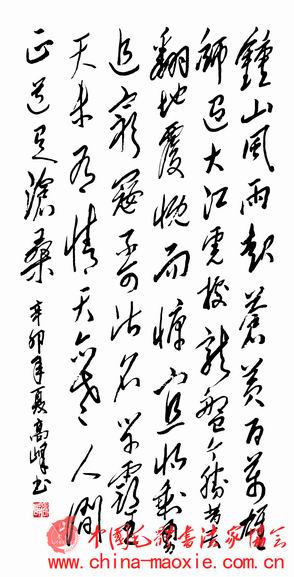 鍾山風雨起蒼黃百萬雄
師過大江虎踞龍盤今勝昔天
翻地覆慨而慷宜將剩勇
追窮寇不可沽名學霸王
天若有情天亦老人間
正道是滄桑
辛卯年夏高峰书
中国毛体書法家協会
www.china-maoxie.com